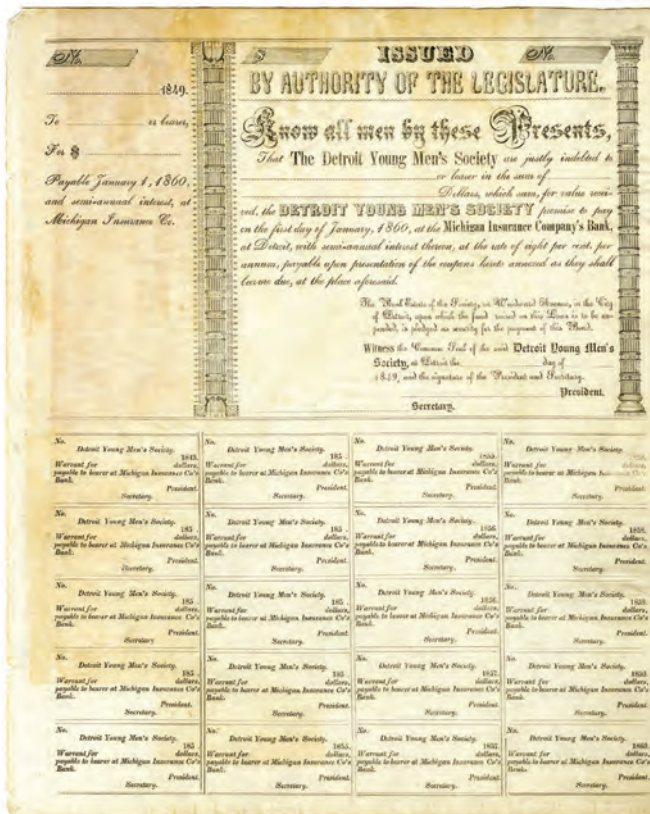 No.
1849.
To or bearer,
For $
Payable January 1, 1860,
and semi-annual interest, at
Michigan Insurance Co.
$ ISSUED No.
BY AUTHORITY OF THE LEGISLATURE.
Know all men by these Presents,
That The Detroit Young Men's Society are justly indebted to
or bearer in the sum of
Dollars, which sum, for value recei-
ved, the DETROIT YOUNG MEN'S SOCIETY promise to pay
on the first day of January, 1860, at the Michigan Insurance Company's Bank,
at Detroit, with semi-annual interest thereon, at the rate of eight per cent. per
annum, payable upon presentation of the coupons hereto annexed as they shall
become due, at the place aforesaid.
The Real Estate of the Society, on Woodward Avenue, in the City
of Detroit, upon which the fund raised on this Loan is to be ex-
pended, is pledged as security for the payment of this Bond.
Witness the Common Seal of the said Detroit Young Men's
Society, at Detroit the day of
1849, and the signature of the President and Secretary.
President.
Secretary.
No.
Detroit Young Men's Society.
1849.
Warrant for dollars,
payable to bearer at Michigan Insurance Co's
Bank.
President.
Secretary.
No.
Detroit Young Men's Society.
185
Warrant for dollars,
payable to bearer at Michigan Insurance Co's
Bank.
President.
Secretary.
No.
Detroit Young Men's Society.
Warrant for dollars,
payable to bearer at Michigan Insurance Co's
Bank.
President.
Secretary.
No.
Detroit Young Men's Society.
Warrant for dollars,
payable to bearer at Michigan Insurance Co's
Bank.
President.
Secretary.
No.
Detroit Young Men's Society.
185
Warrant for dollars,
payable to bearer at Michigan Insurance Co's
Bank.
President.
Secretary.
No.
Detroit Young Men's Society.
185
Warrant for dollars,
payable to bearer at Michigan Insurance Co's
Bank.
President.
Secretary.
No.
Detroit Young Men's Society.
1856.
Warrant for dollars,
payable to bearer at Michigan Insurance Co's
Bank.
President.
Secretary.
No.
Detroit Young Men's Society.
1858.
Warrant for dollars,
payable to bearer at Michigan Insurance Co's
Bank.
President.
Secretary.
No.
Detroit Young Men's Society.
185
Warrant for dollars,
payable to bearer at Michigan Insurance Co's
Bank.
President.
Secretary
No.
Detroit Young Men's Society.
185
Warrant for dollars,
payable to bearer at Michigan Insurance Co's
Bank.
President.
Secretary.
No.
Detroit Young Men's Society.
1856.
Warrant for dollars,
payable to bearer at Michigan Insurance Co's
Bank.
President.
Secretary.
No.
Detroit Young Men's Society.
Warrant for dollars,
payable to bearer at Michigan Insurance Co's
Bank.
President.
Secretary.
No.
Detroit Young Men's Society.
185
Warrant for dollars,
payable to bearer at Michigan Insurance Co's
Bank.
President.
Secretary.
No.
Detroit Young Men's Society.
185
Warrant for dollars,
payable to bearer at Michigan Insurance Co's
Bank.
President.
Secretary.
No.
Detroit Young Men's Society.
1857.
Warrant for dollars,
payable to bearer at Michigan Insurance Co's
Bank.
President.
Secretary.
No.
Detroit Young Men's Society.
Warrant for dollars,
payable to bearer at Michigan Insurance Co's
Bank.
President.
Secretary.
No.
Detroit Young Men's Society.
185
Warrant for dollars,
payable to bearer at Michigan Insurance Co's
Bank.
President.
Secretary.
No.
Detroit Young Men's Society.
1855.
Warrant for dollars,
payable to bearer at Michigan Insurance Co's
Bank.
President.
Secretary.
No.
Detroit Young Men's Society.
Warrant for dollars,
payable to bearer at Michigan Insurance Co's
Bank.
President.
Secretary.
No.
Detroit Young Men's Society.
1860.
Warrant for dollars,
payable to bearer at Michigan Insurance Co's
Bank.
President.
Secretary.